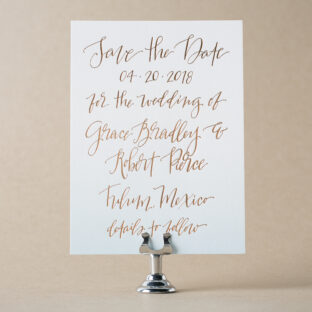 Save the Date
04·20·2018
for the wedding of
Grace Bradley &
Robert Pierce
Tulum, Mexico
details to follow